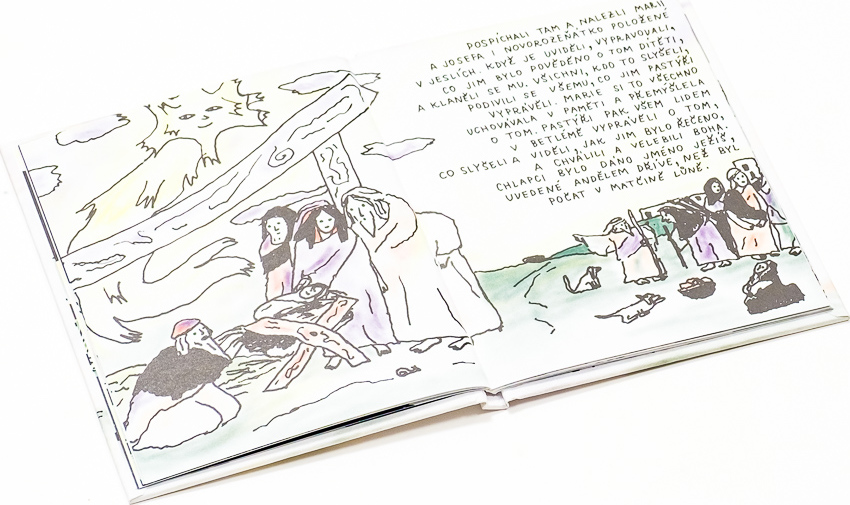 POSPÍCHALI TAM A NALEZLI MARII
A JOSEFA I NOVOROZEŇÁTKO POLOŽENÉ
V JESLÍCH. KDYŽ JE UVIDĚLI, VYPRAVOVALI,
CO JIM BYLO POVĚDĚNO O TOM DÍTĚTI,
A KLANĚLI SE MU. VŠICHNI, KDO TO SLYŠELI,
PODIVILI SE VŠEMU, CO JIM PASTÝŘI
VYPRÁVĚLI. MARIE SI TO VŠECHNO
UCHOVÁVALA V PAMĚTI A PŘEMÝŠLELA
O TOM. PASTÝŘI PAK VŠEM LIDEM
V BETLÉMĚ VYPRÁVĚLI O TOM,
CO SLYŠELI A VIDĚLI, JAK JIM BYLO ŘEČENO,
A CHVÁLILI A VELEBILI BOHA.
CHLAPCI BYLO DÁNO JMÉNO JEŽÍŠ,
UVEDENÉ ANDĚLEM DŘÍVE, NEŽ BYL
POČAT V MATČINĚ LŮNĚ.